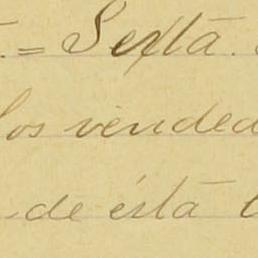 = Sexta.
los vended
de ésta